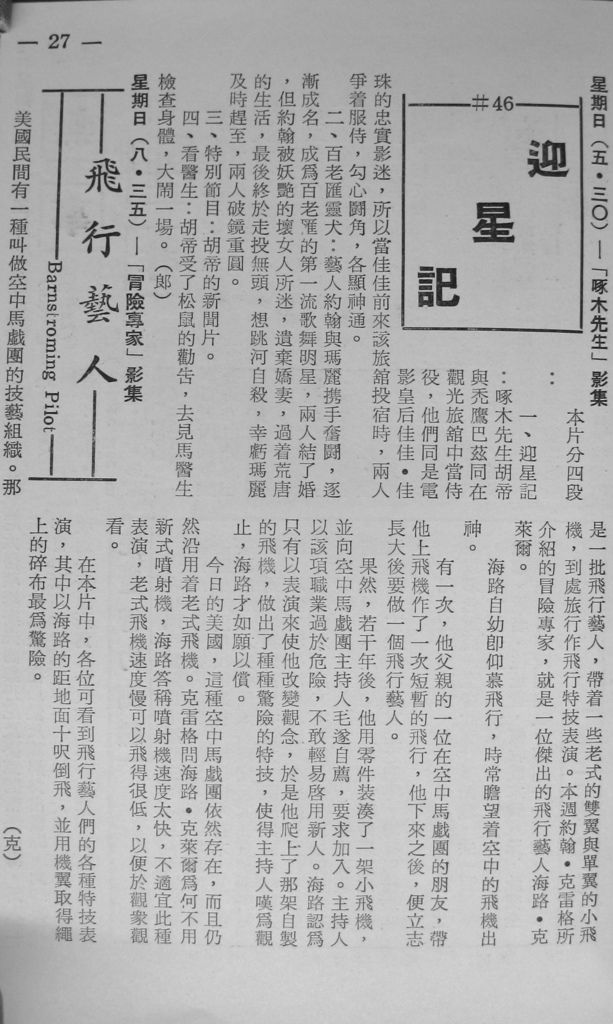 — 27 —
星期日（五・三〇）—「啄木先生」影集
#46
迎星記
本片分四段
：
一、迎星記
：啄木先生胡帝
與禿鷹巴茲同在
觀光旅舘中當侍
役，他們同是電
影皇后佳佳・佳
珠的忠實影迷，所以當佳佳前來該旅舘投宿時，兩人
爭着服侍，勾心鬪角，各顯神通。
二、百老匯靈犬：藝人約翰與瑪麗携手奮鬪，逐
漸成名，成爲百老匯的第一流歌舞明星，兩人結了婚
，但約翰被妖艷的壞女人所迷，遺棄嬌妻，過着荒唐
的生活，最後終於走投無頭，想跳河自殺，幸虧瑪麗
及時趕至，兩人破鏡重圓。
三、特別節目：胡帝的新聞片。
四、看醫生：胡帝受了松鼠的勸告，去見馬醫生
檢查身體，大鬧一場。（郞）
星期日（八・三五）—「冒險專家」影集
飛行藝人
Barnstroming Pilot
美國民間有一種叫做空中馬戲團的技藝組織。那
是一批飛行藝人，帶着一些老式的雙翼與單翼的小飛
機，到處旅行作飛行特技表演。本週約翰・克雷格所
介紹的冒險專家，就是一位傑出的飛行藝人海路・克
萊爾。
海路自幼卽仰慕飛行，時常瞻望着空中的飛機出
神。
有一次，他父親的一位在空中馬戲團的朋友，帶
他上飛機作了一次短暫的飛行，他下來之後，便立志
長大後要做一個飛行藝人。
果然，若干年後，他用零件裝湊了一架小飛機，
並向空中馬戲團主持人毛遂自薦，要求加入。主持人
以該項職業過於危險，不敢輕易啓用新人。海路認爲
只有以表演來使他改變觀念，於是他爬上了那架自製
的飛機，做出了種種驚險的特技，使得主持人嘆爲觀
止，海路才如願以償。
今日的美國，這種空中馬戲團依然存在，而且仍
然沿用着老式飛機。克雷格問海路・克萊爾爲何不用
新式噴射機，海路答稱噴射機速度太快，不適宜此種
表演，老式飛機速度慢可以飛得很低，以便於觀衆觀
看。
在本片中，各位可看到飛行藝人們的各種特技表
演，其中以海路的距地面十呎倒飛，並用機翼取得繩
上的碎布最爲驚險。
（克）